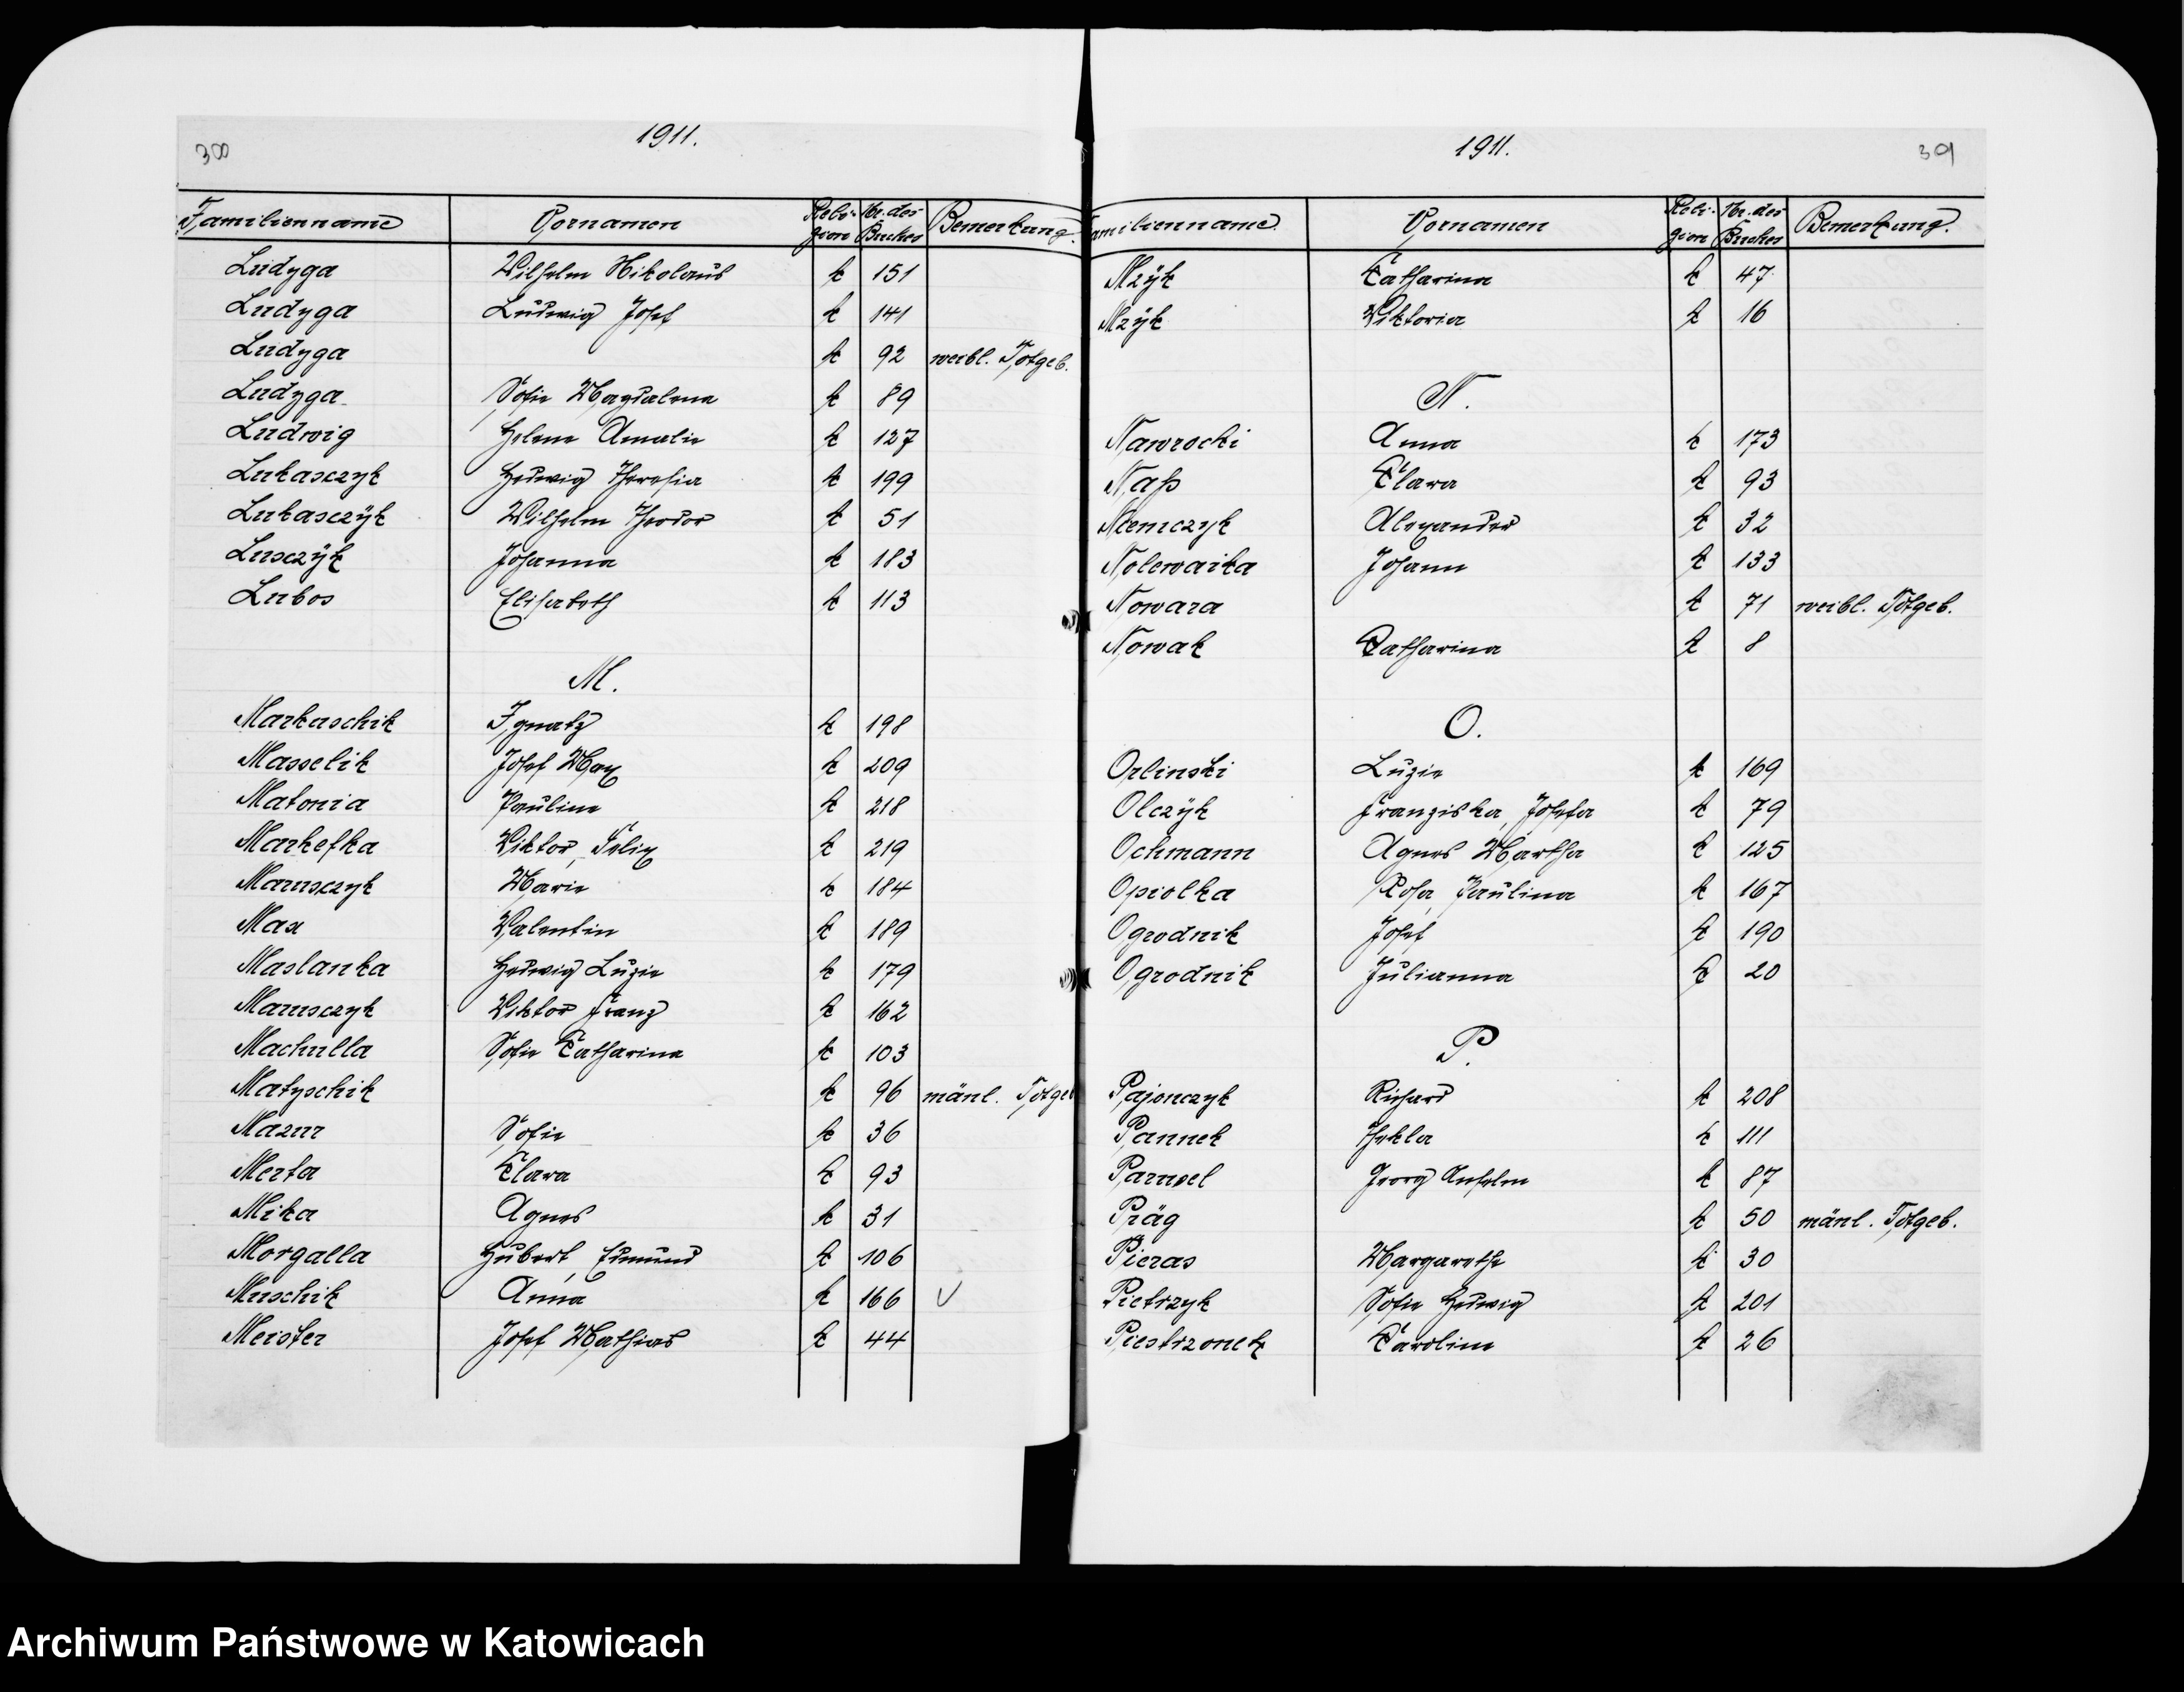 300
1911.
Familienname Vornamen Reli- gion Nr. des Buches Bemerkung.
Ludyga Wilhelm Nikolaus k 151
Ludyga Ludwig Josef k 141
Ludyga k 92 weibl. Totgeb.
Ludyga Sofie Magdalena k 89
Ludwig Helene Amalie k 127
Lukasczyk Hedwig Theresia k 199
Lukasczÿk Wilhelm Theodor k 51
Lusczÿk Johanna k 183
Lubos Elisabeth k 113
M.
Markaschik Ignatz k 198
Masselik Josef Max k 209
Matonia Pauline k 218
Markefka Viktor, Felix k 219
Mamsczyk Marie k 184
Max Valentin k 189
Maslanka Hedwig Luzie k 179
Mamsczyk Viktor Franz k 162
Machulla Sofie Catharina k 103
Matyschik k 96 mänl. Totgeb
Mazur Sofie k 36
Merta Clara k 93
Mika Agnes k 31
Morgalla Hubert, Edmund k 106
Muschik Anna k 166 V
Meister Josef Mathias k 44
1911.
301
Familienname. Vornamen Reli- gion Nr. des Buches Bemerkung.
Mzÿk Catharina k 47
Mzÿk Viktoria k 16
N.
Nawrocki Anna k 173
Naß Clara k 93
Niemczyk Alexander k 32
Nolewaika Johann k 133
Nowara k 71 weibl. Totgeb.
Nowak Catharina k 8
O.
Orlinski Luzie k 169
Olczÿk Franziska, Josefa k 79
Ochmann Agnes Martha k 125
Opiolka Rosa, Paulina k 167
Ogrodnik Josef k 190
Ogrodnik Julianna k 20
P.
Pajonczyk Richard k 208
Pannek Thekla k 111
Parusel Georg Anselm k 87
Präg k 50 mänl. Totgeb.
Pieras Margarethe k 30
Pietrzyk Sofie Hedwig k 201
Piestrzonek Caroline k 26
Archiwum Państwowe w Katowicach